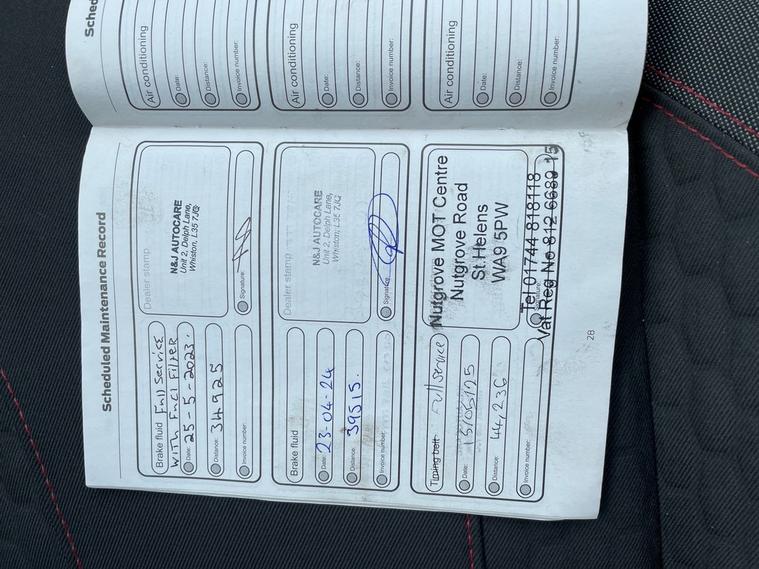 Sched
Air conditioning
Date:
Distance:
Invoice number:
Air conditioning
Date:
Distance:
Invoice number:
Air conditioning
Date:
Distance:
Invoice number:
Scheduled Maintenance Record
Brake fluid Full Service
With Fuel Filter
Date: 25-5-2023.
Distance: 34925
Invoice number:
Dealer stamp
N&J AUTOCARE
Unit 2, Delph Lane,
Whiston, L35 7JQ
Signature:
Brake fluid
Date: 23-04-24
Distance: 39515.
Invoice number:
Dealer stamp
N&J AUTOCARE
Unit 2, Delph Lane,
Whiston, L35 7JQ
Signature:
Timing belt Full service
Date: 15/05/25
Distance: 44,236
Invoice number:
Nutgrove MOT Centre
Nutgrove Road
St.Helens
WA9 5PW
Tel 01744 818118
Vat Reg No 812 6689 15
28